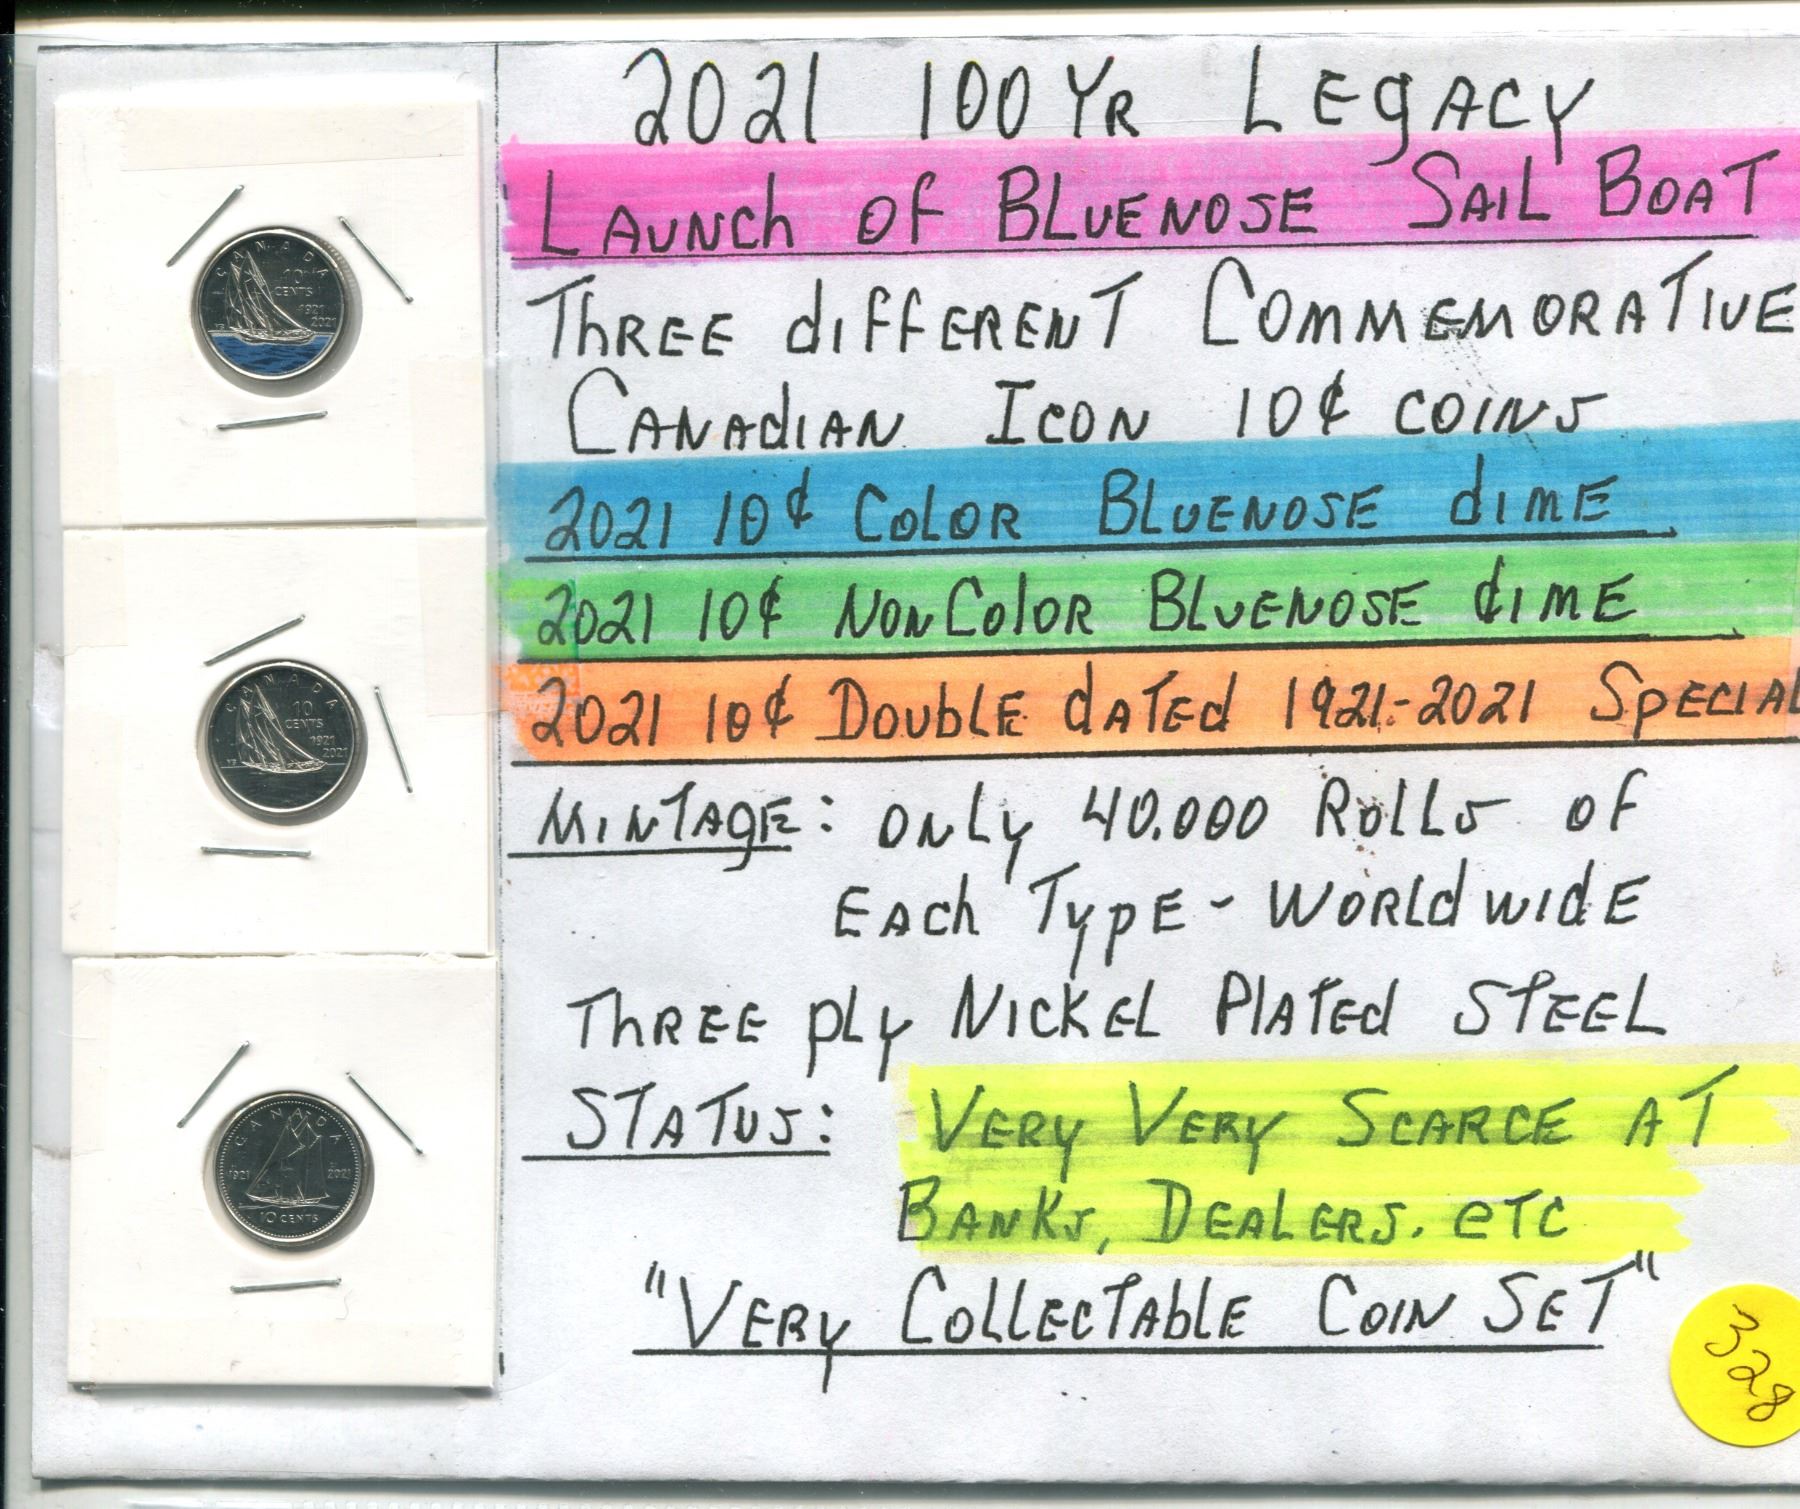 2021 100 YR LEGACY
LAUNCH OF BLUENOSE SAIL BOAT
THREE diffERENT COMMEMORATIVE
CANAdIAN ICON 10¢ COINS
2021 10¢ COLOR BLUENOSE dIME
2021 10¢ NON COlOR BLUENOSE dIME
2021 10¢ DOUBLE dATEd 1921-2021 SPECIAL
MINTAGE: ONLY 40.000 ROLLS OF
EACH TYPE - WORLDWIDE
THREE PLY NICKEL PLATED STEEL
STATUS: VERY VERY SCARCE AT
BANKS, DEALERS. ETC
"VERY COLLECTABLE COIN SET"
328
CANADA
10
CENTS
1921
2021
CANADA
10
CENTS
1921
2021
CANADA
1921 2021
10 CENTS